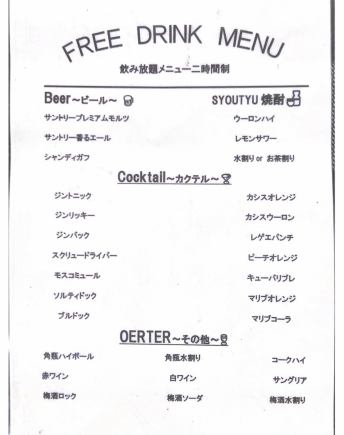 FREE DRINK MENU
飲み放題メニュー二時間制
Beer～ビール～
サントリープレミアムモルツ
サントリー香るエール
シャンディガフ
SYOUTYU 焼酎
ウーロンハイ
レモンサワー
水割り or お茶割り
Cocktail～カクテル～
ジントニック カシスオレンジ
ジンリッキー カシスウーロン
ジンバック レゲエパンチ
スクリュードライバー ピーチオレンジ
モスコミュール キューバリブレ
ソルティドック マリブオレンジ
ブルドック マリブコーラ
OERTER～その他～
角瓶ハイボール 角瓶水割り コークハイ
赤ワイン 白ワイン サングリア
梅酒ロック 梅酒ソーダ 梅酒水割り